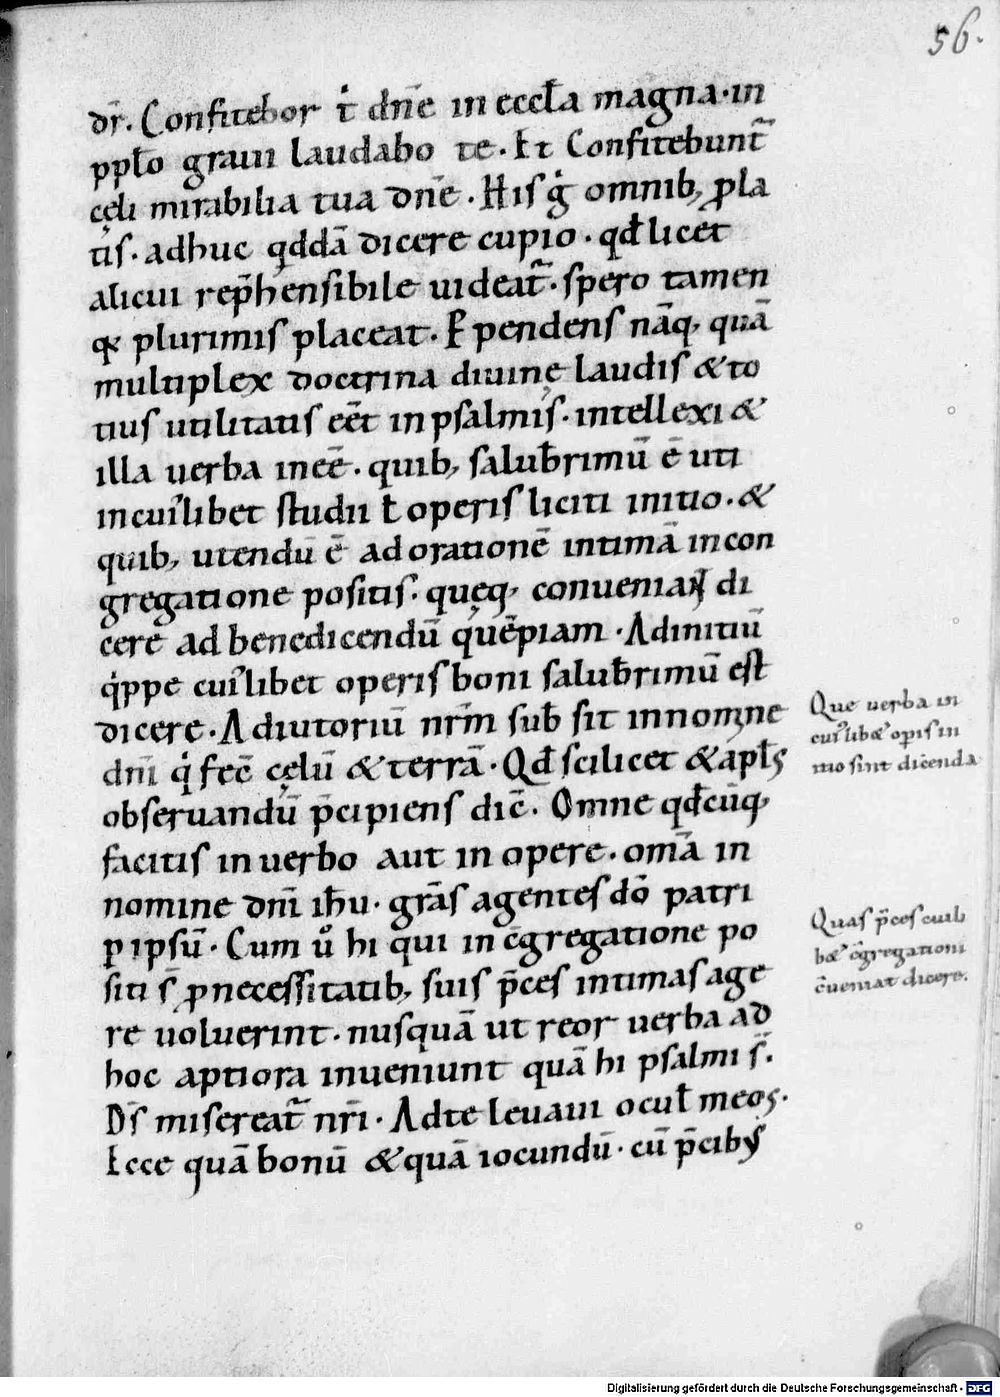 56.
dr̄. Confitebor t̓ dn̄e in eccƚa magna. in
ppƚo graui laudabo te. Et Confitebunt᷑
cęli mirabilia tua dn̄e. His g̓ omnib; ꝓla
tis. adhuc qddā dicere cupio. qđ licet
alicui rep̄hensibile uideat᷑. spero tamen
qđ plurimis placeat. Perpendens nāq; quā
multiplex doctrina diuinę laudis & to
tius utilitatis eēt in psalmis. intellexi &
illa uerba ineē. quib; salub̄rimū ē uti
in cui᷒libet studii ƚ operis liciti initio. &
quib; utendū ē ad orationē intimā in con
gregatione positis. quęq; conueniant di
cere ad benedicendū quēpiam. Ad initiū
q̓ppe cui᷒libet operis boni salub̄rimū est
dicere. Adiutoriū nr̄m sub̄ sit in nomine
dn̄i q̓ fec̄ cęlū & terrā. Qđ scilicet & apƚs
obseruandū p̄cipiens dic̄. Omne qđcūq;
facitis in uerbo aut in opere. om̄a in
nomine dn̄i ih̄u. grās agentes dō patri
ꝑ ipsū. Cum ů hi qui in c̄gregatione po
siti s̄ ꝓ necessitatib; suis p̄ces intimas age
re uoluerint. nusquā ut reor uerba ad
hoc aptiora inueniunt quā hi psalmi s̄.
Ds̄ misereat᷑ nr̄i. Ad te leuaui ocuƚ meos.
Ecce quā bonū & quā iocundū. cū p̄cib;
Que uerba in
cui᷒libet opis in
itio sint dicenda
Quas p̄ces cuili
bet c̄gregationi
c̄ueniat dicere.
Digitalisierung gefördert durch die Deutsche Forschungsgemeinschaft - DFG